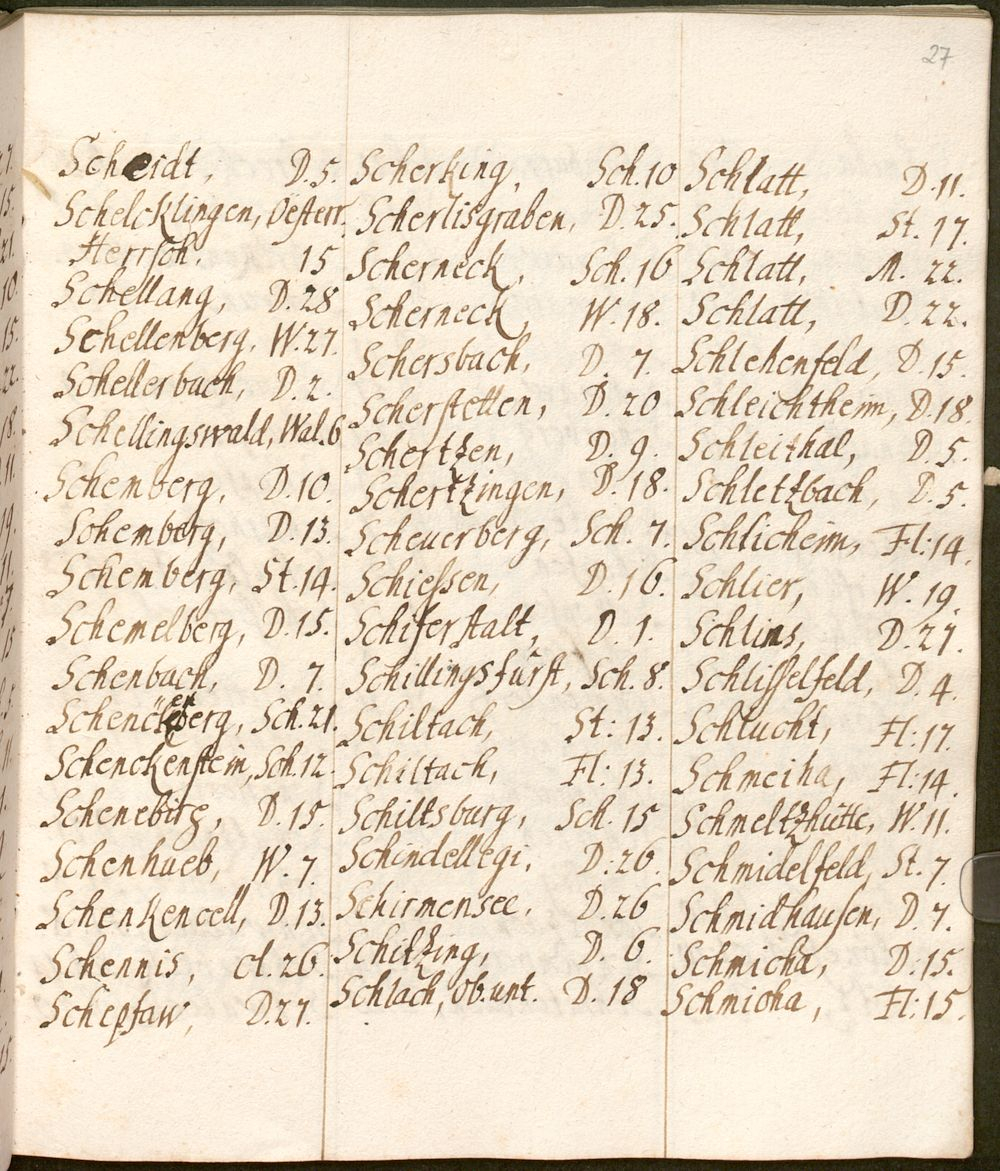 27
Scheidt, D. 5.
Schelcklingen, Oesterr.
Herrsch. 15
Schellang, D. 28
Schellenberg, W. 27.
Schellerbach, D. 2.
Schellingswald, Wal. 6
Schemberg, D. 10.
Schemberg, D. 13.
Schemberg, St. 14.
Schemelberg, D. 15.
Schenbach, D. 7.
Schenckenberg, Sch. 21.
Schenckenstein, Sch. 12.
Schenebirg, D. 15.
Schenhueb, W. 7.
Schenkencell, D. 13.
Schennis, cl. 26.
Schepfaw, D. 27.
Scherking, Sch. 10
Scherlisgraben, D. 25.
Scherneck, Sch. 16
Scherneck, W. 18.
Schersbach, D. 7.
Scherstetten, D. 20
Schertzen, D. 9.
Schertzingen, D. 18.
Scheuerberg, Sch. 7.
Schiessen, D. 16.
Schiferstalt, D. 1.
Schillingsfürst, Sch. 8.
Schiltach, St: 13.
Schiltach, Fl: 13.
Schiltsburg, Sch. 15
Schindellegi, D. 26.
Schirmensee, D. 26
Schitzing, D. 6.
Schlach, ob. unt. D. 18
Schlatt, D. 11.
Schlatt, St. 17.
Schlatt, M. 22.
Schlatt, D. 22.
Schlehenfeld, D. 15.
Schleichtheim, D. 18.
Schleithal, D. 5.
Schlettzbach, D. 5.
Schlicheim, Fl: 14.
Schlier, W. 19.
Schlins, D. 21.
Schlisselfeld, D. 4.
Schlucht, Fl: 17.
Schmeiha, Fl: 14.
Schmeltzhütte, W. 11.
Schmidelfeld, St. 7.
Schmidhausen, D. 7.
Schmicha, D. 15.
Schmicha, Fl: 15.